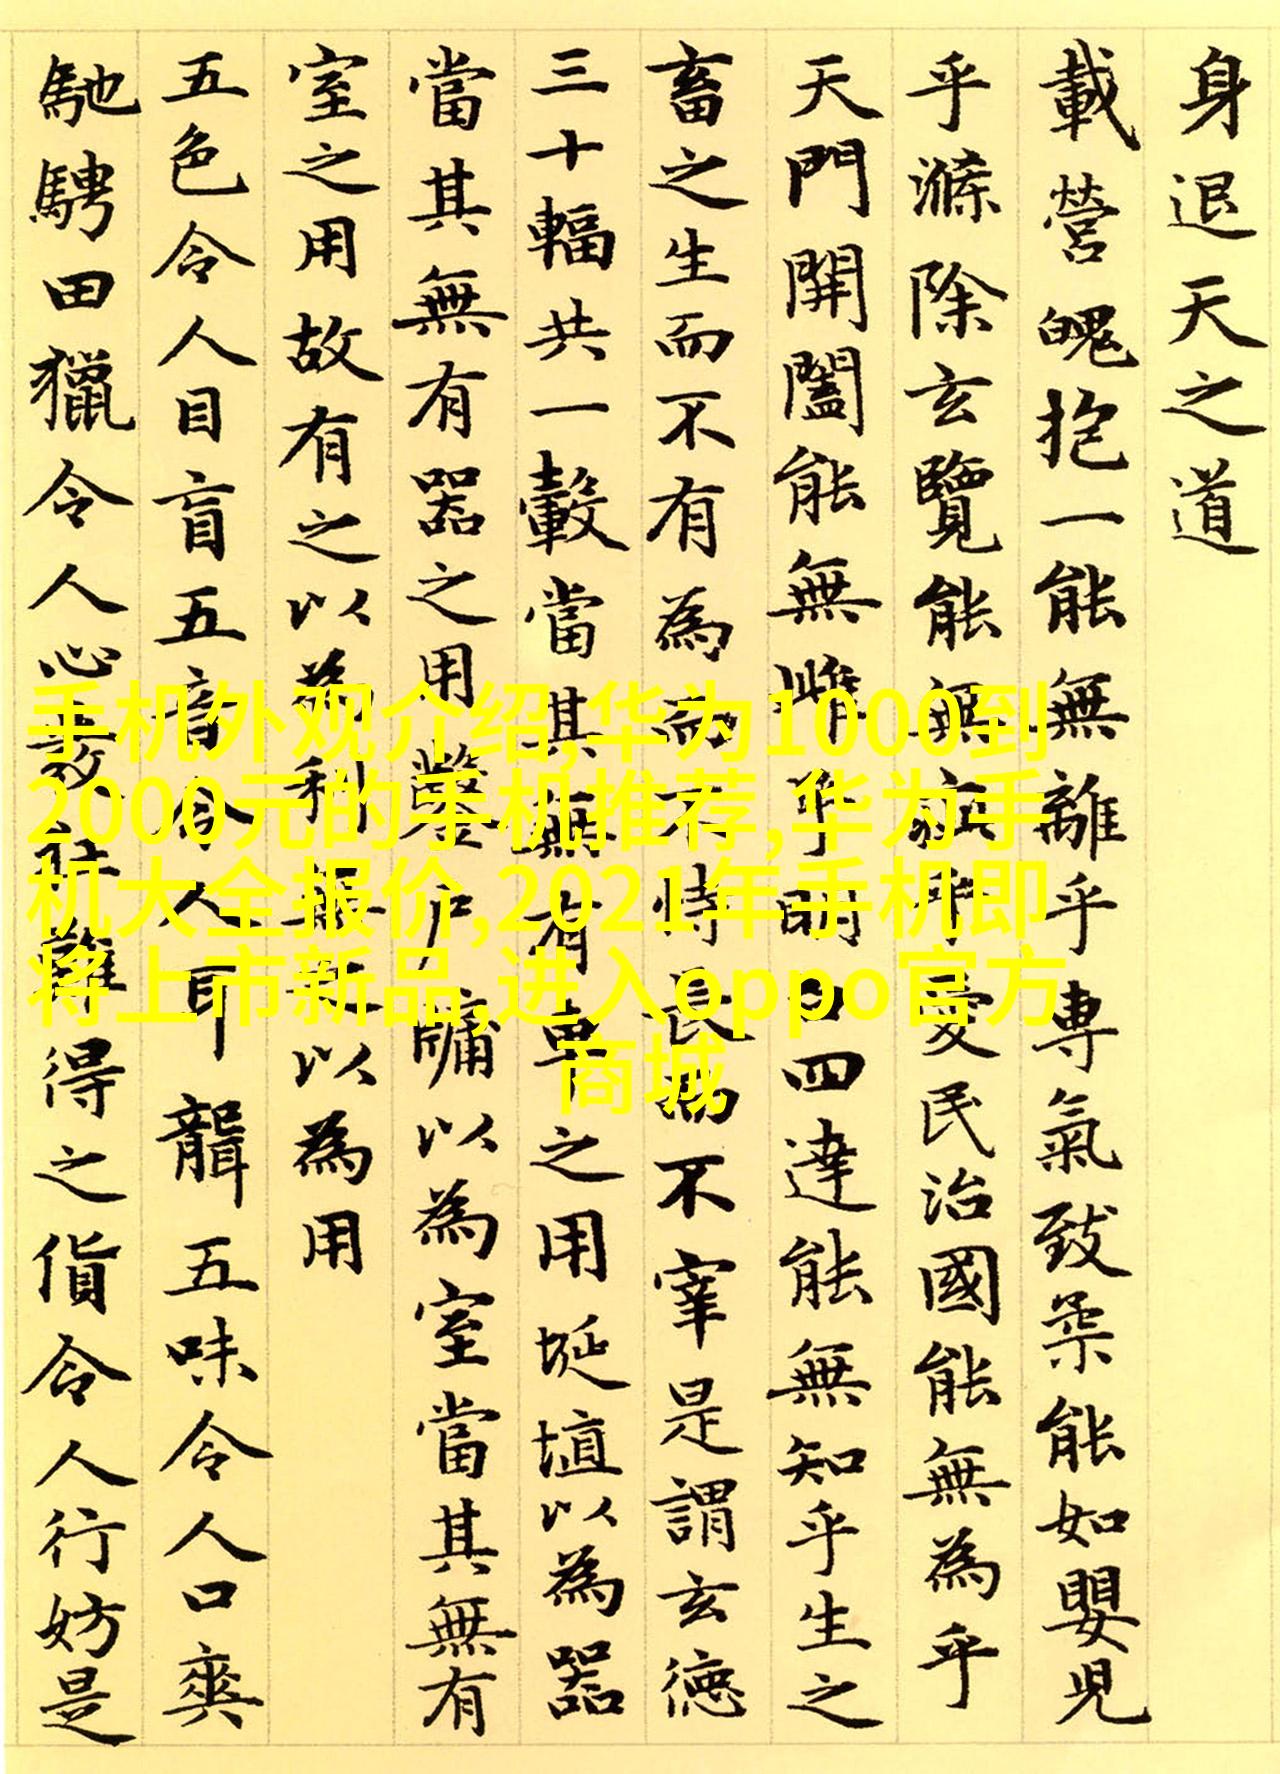 身退天之道
載營魄抱一能無離乎專氣致柔能如嬰兒
乎滌除玄覽能無疵乎愛民治國能無為乎
天門開闔能無雌乎明白四達能無知乎生之
畜之生而不有為而不恃長而不宰是謂玄德
三十輻共一轂當其無有車之用埏埴以為器
當其無有器之用鑿戶牖以為室當其無有
室之用故有之以為利無之以為用
五色令人目盲五音令人耳聾五味令人口爽
馳騁田獵令人心發狂難得之貨令人行妨是
手机外观介绍,华为1000到
2000元的手机推荐,华为手
机大全报价,2021年手机即
将上市新品,进入oppo官方
商城